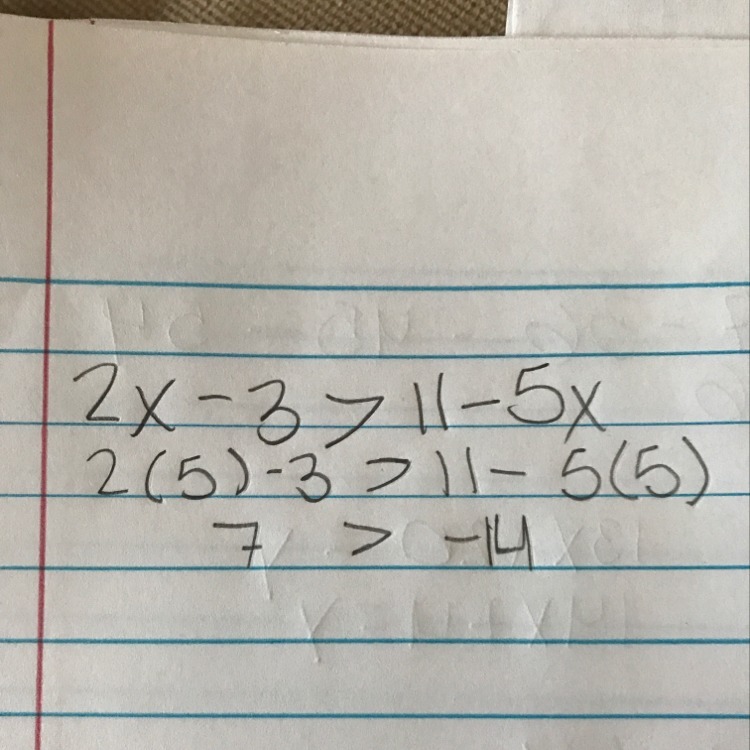 2x - 3 > 11 - 5x
2(5) - 3 > 11 - 5(5)
7 > -14